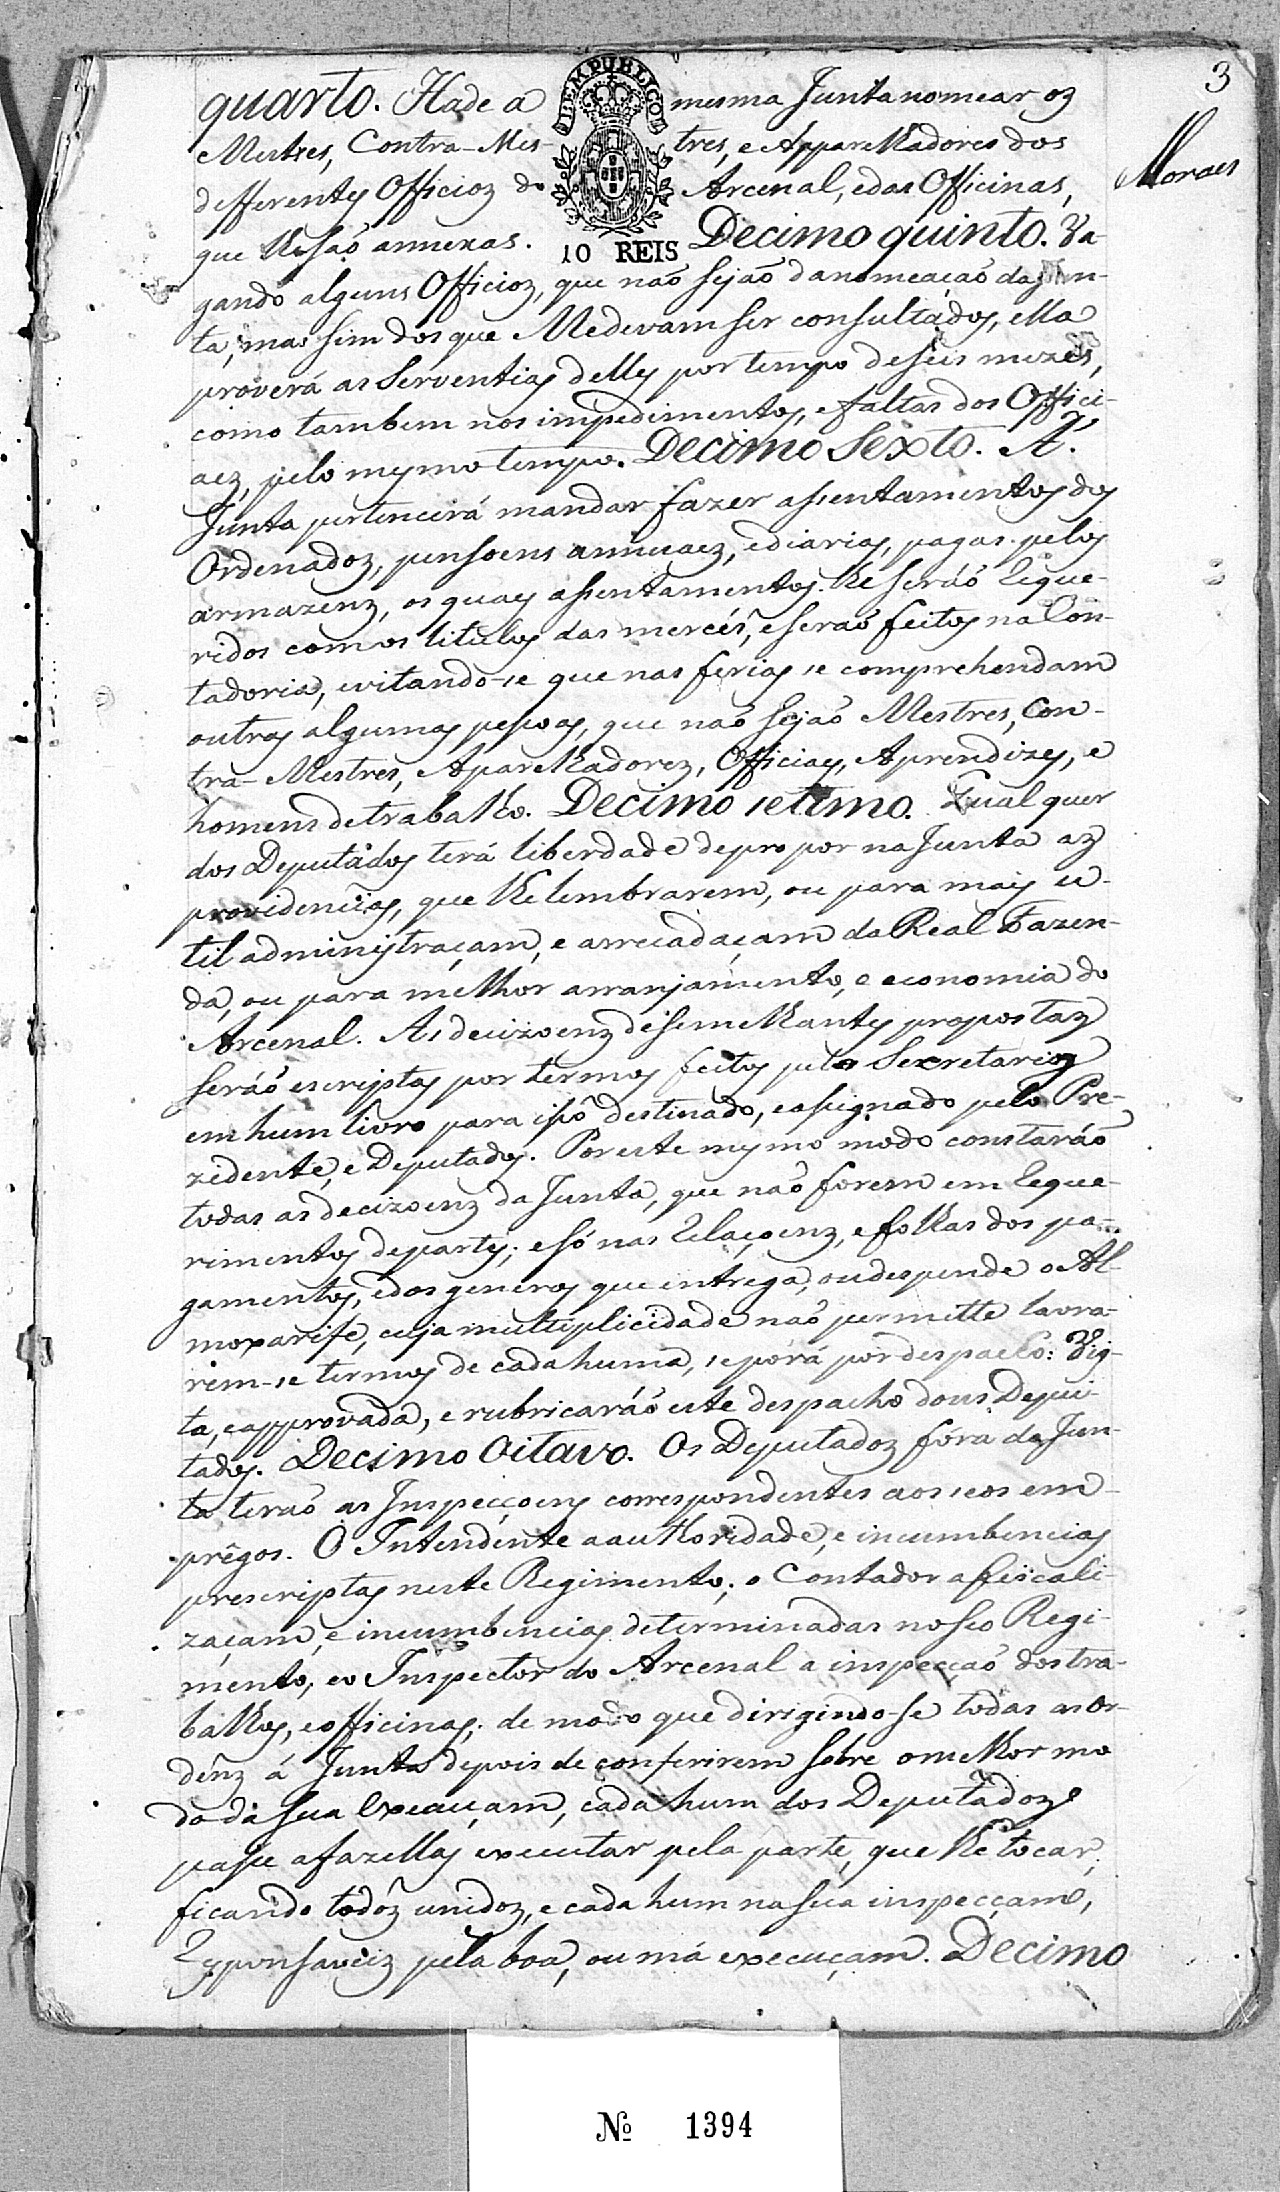 3
Moraes
BEM PUBLICO
10 REIS
quarto. Hade a mesma Junta nomear oz
Mestres, Contra-Mestres, e Apparelhadores dos
defferentes Officioz do Arcenal, edas Officinas,
que lhe saõ annexas. Decimo quinto. Va-
gando alguns Officioz, que naõ sejaõ da nomeaçaõ da Jun-
ta, mas sim dos que Me devam ser consultádos, ella
proverá as Serventias delles por tempo de seis mezes,
como tambem nos impedimentos, e faltas dos Offici-
aez, pelo mesmo tempo. Decimo Sexto. Á
Junta pertencerá mandar fazer assentamentos dos
Ordenadoz, pensoens annuaez, ediarias, pagas pelos
armazenz, os quaes assentamentos lhe seráõ reque-
ridos com os titulos das mercés, e seraõ feitos na Con-
tadoria, evitando-se que nas ferias se comprehendam
outras algumas pessoas, que naõ sejaõ Mestres, Con-
tra-Mestres, Aparelhadorez, Officiaes, Aprendizes, e
homens de trabalho. Decimo setimo. Qual quer
dos Deputádos terá liberdade de pro por na Junta az
providencias, que lhe lembrarem, ou para mais u-
til administraçam, e arrecadaçam da Real Fazen-
da, ou para melhor arranjamento, e economia do
Arcenal. As decizoenz de semelhantes propostaz
seráõ escriptas por termos feitos pelo Secretario
em hum livro para isso destinado, eassignado pelo Pre-
zidente, e Deputados. Por este mesmo modo constaráõ
todas as decizoenz da Junta, que naõ forem em reque-
rimentos de partes; e só nas relaçoenz, e folhas dos pa-
gamentos, edos generos que entrega, ou despende o Al-
moxarife, cuja multiplicidade naõ permitte lavra-
rem-se termos de cada huma, se porá por despacho: Vis-
ta, eapprovada, e rubricaráõ este despacho dous Depu-
tados. Decimo Oitavo. Os Deputadoz fóra da Jun-
ta teraõ as Inspecçoens correspondentes aos seos em-
prêgos. O Intendente a authoridade, e incumbencias
prescriptas neste Regimento; o Contador a fiscali-
zaçam, e incumbencias determinadas no seo Regi-
mento, eo Inspector do Arcenal a inspecçaõ dos tra-
balhos, e officinas; de modo que dirigindo-se todas as or-
dênz á Junta depois de conferirem sobre o melhor mo
do da sua execuçam, cada hum dos Deputádoz
passe a fazellas executar pela parte, que lhe tocar,
ficando todôz unidoz, e cada hum na sua inspecçam,
responsaveiz pela boa, ou má execuçam. Decimo
Nº 1394